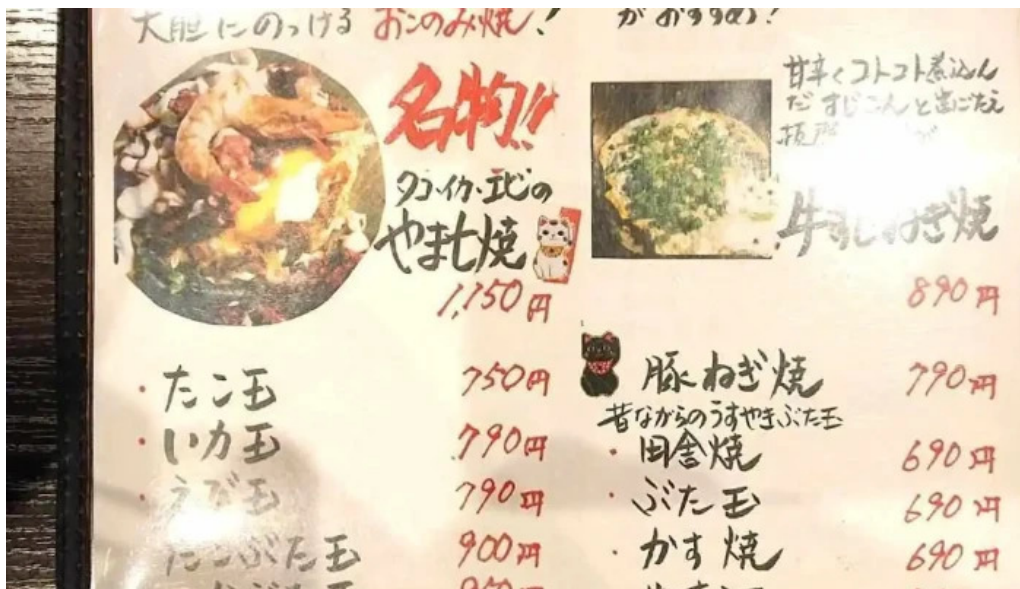 大胆にのっける おこのみ焼!
名物!!
タコ・イカ・エビの
やまも焼
1,150円
・たこ玉 750円
・いか玉 790円
・えび玉 790円
たこぶた玉 900円
がおすすめ!
甘辛くコトコト煮込ん
だ すじこんと歯ごたえ
抜群
牛すじねぎ焼
890円
豚ねぎ焼 790円
昔ながらのうすやきぶた玉
・田舎焼 690円
・ぶた玉 690円
・かす焼 690円